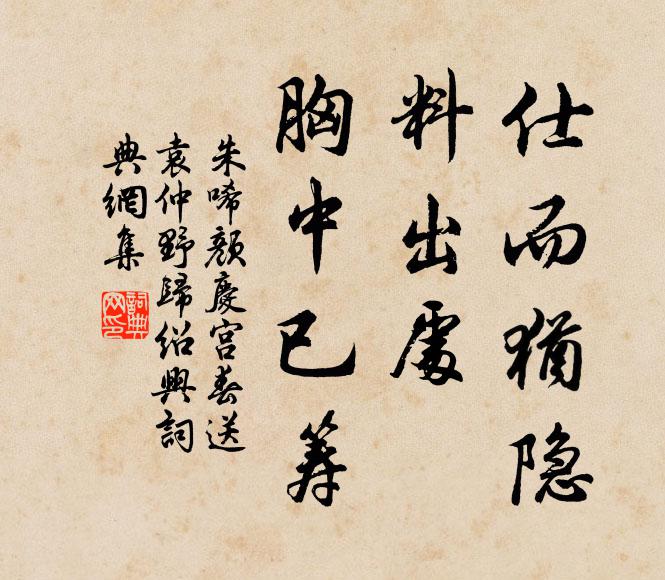 仕而猶隐
料出處
胸中已筹
朱晞顔慶宫春送
袁仲野歸绍興詞
典網集
詞典网印